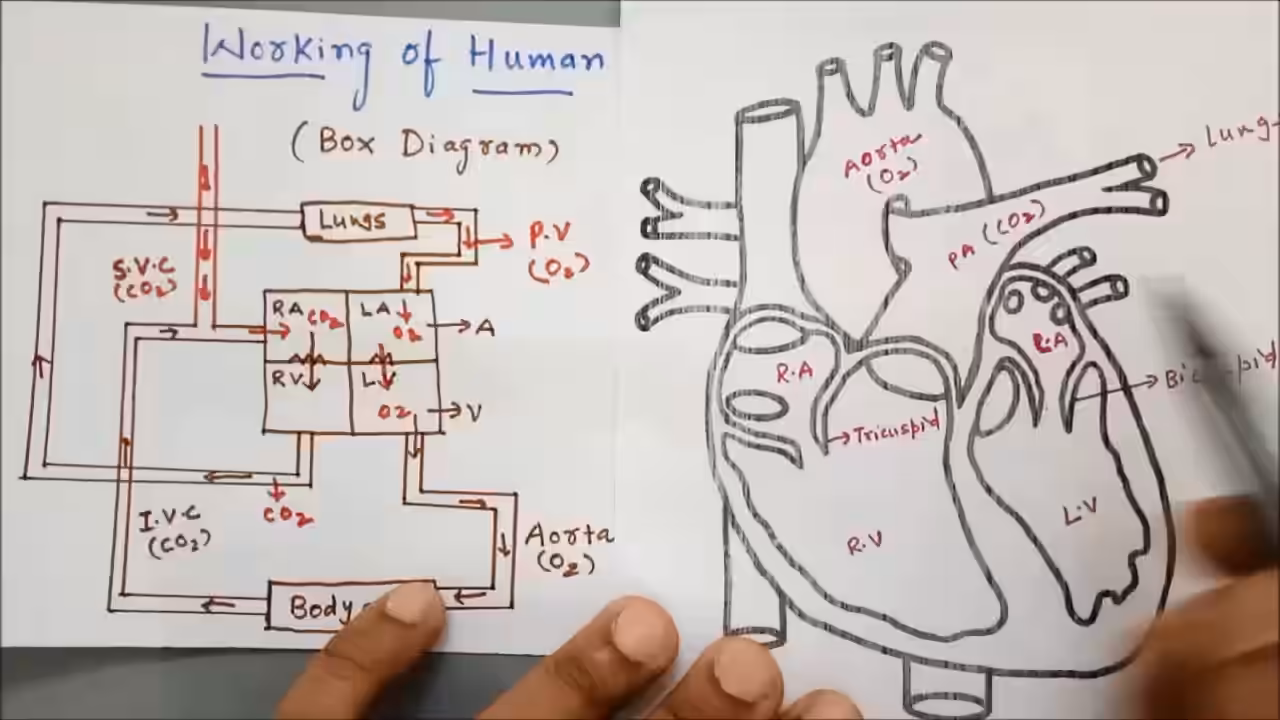 Working of Human
(Box Diagram)
Lungs
P.V
(O₂)
S.V.C
(CO₂)
RA CO₂
LA
O₂
A
RV
LV
O₂
V
CO₂
I.V.C
(CO₂)
Aorta
(O₂)
Body
Aorta
(O₂)
PA (CO₂)
R.A
Tricuspid
R.V
L.V